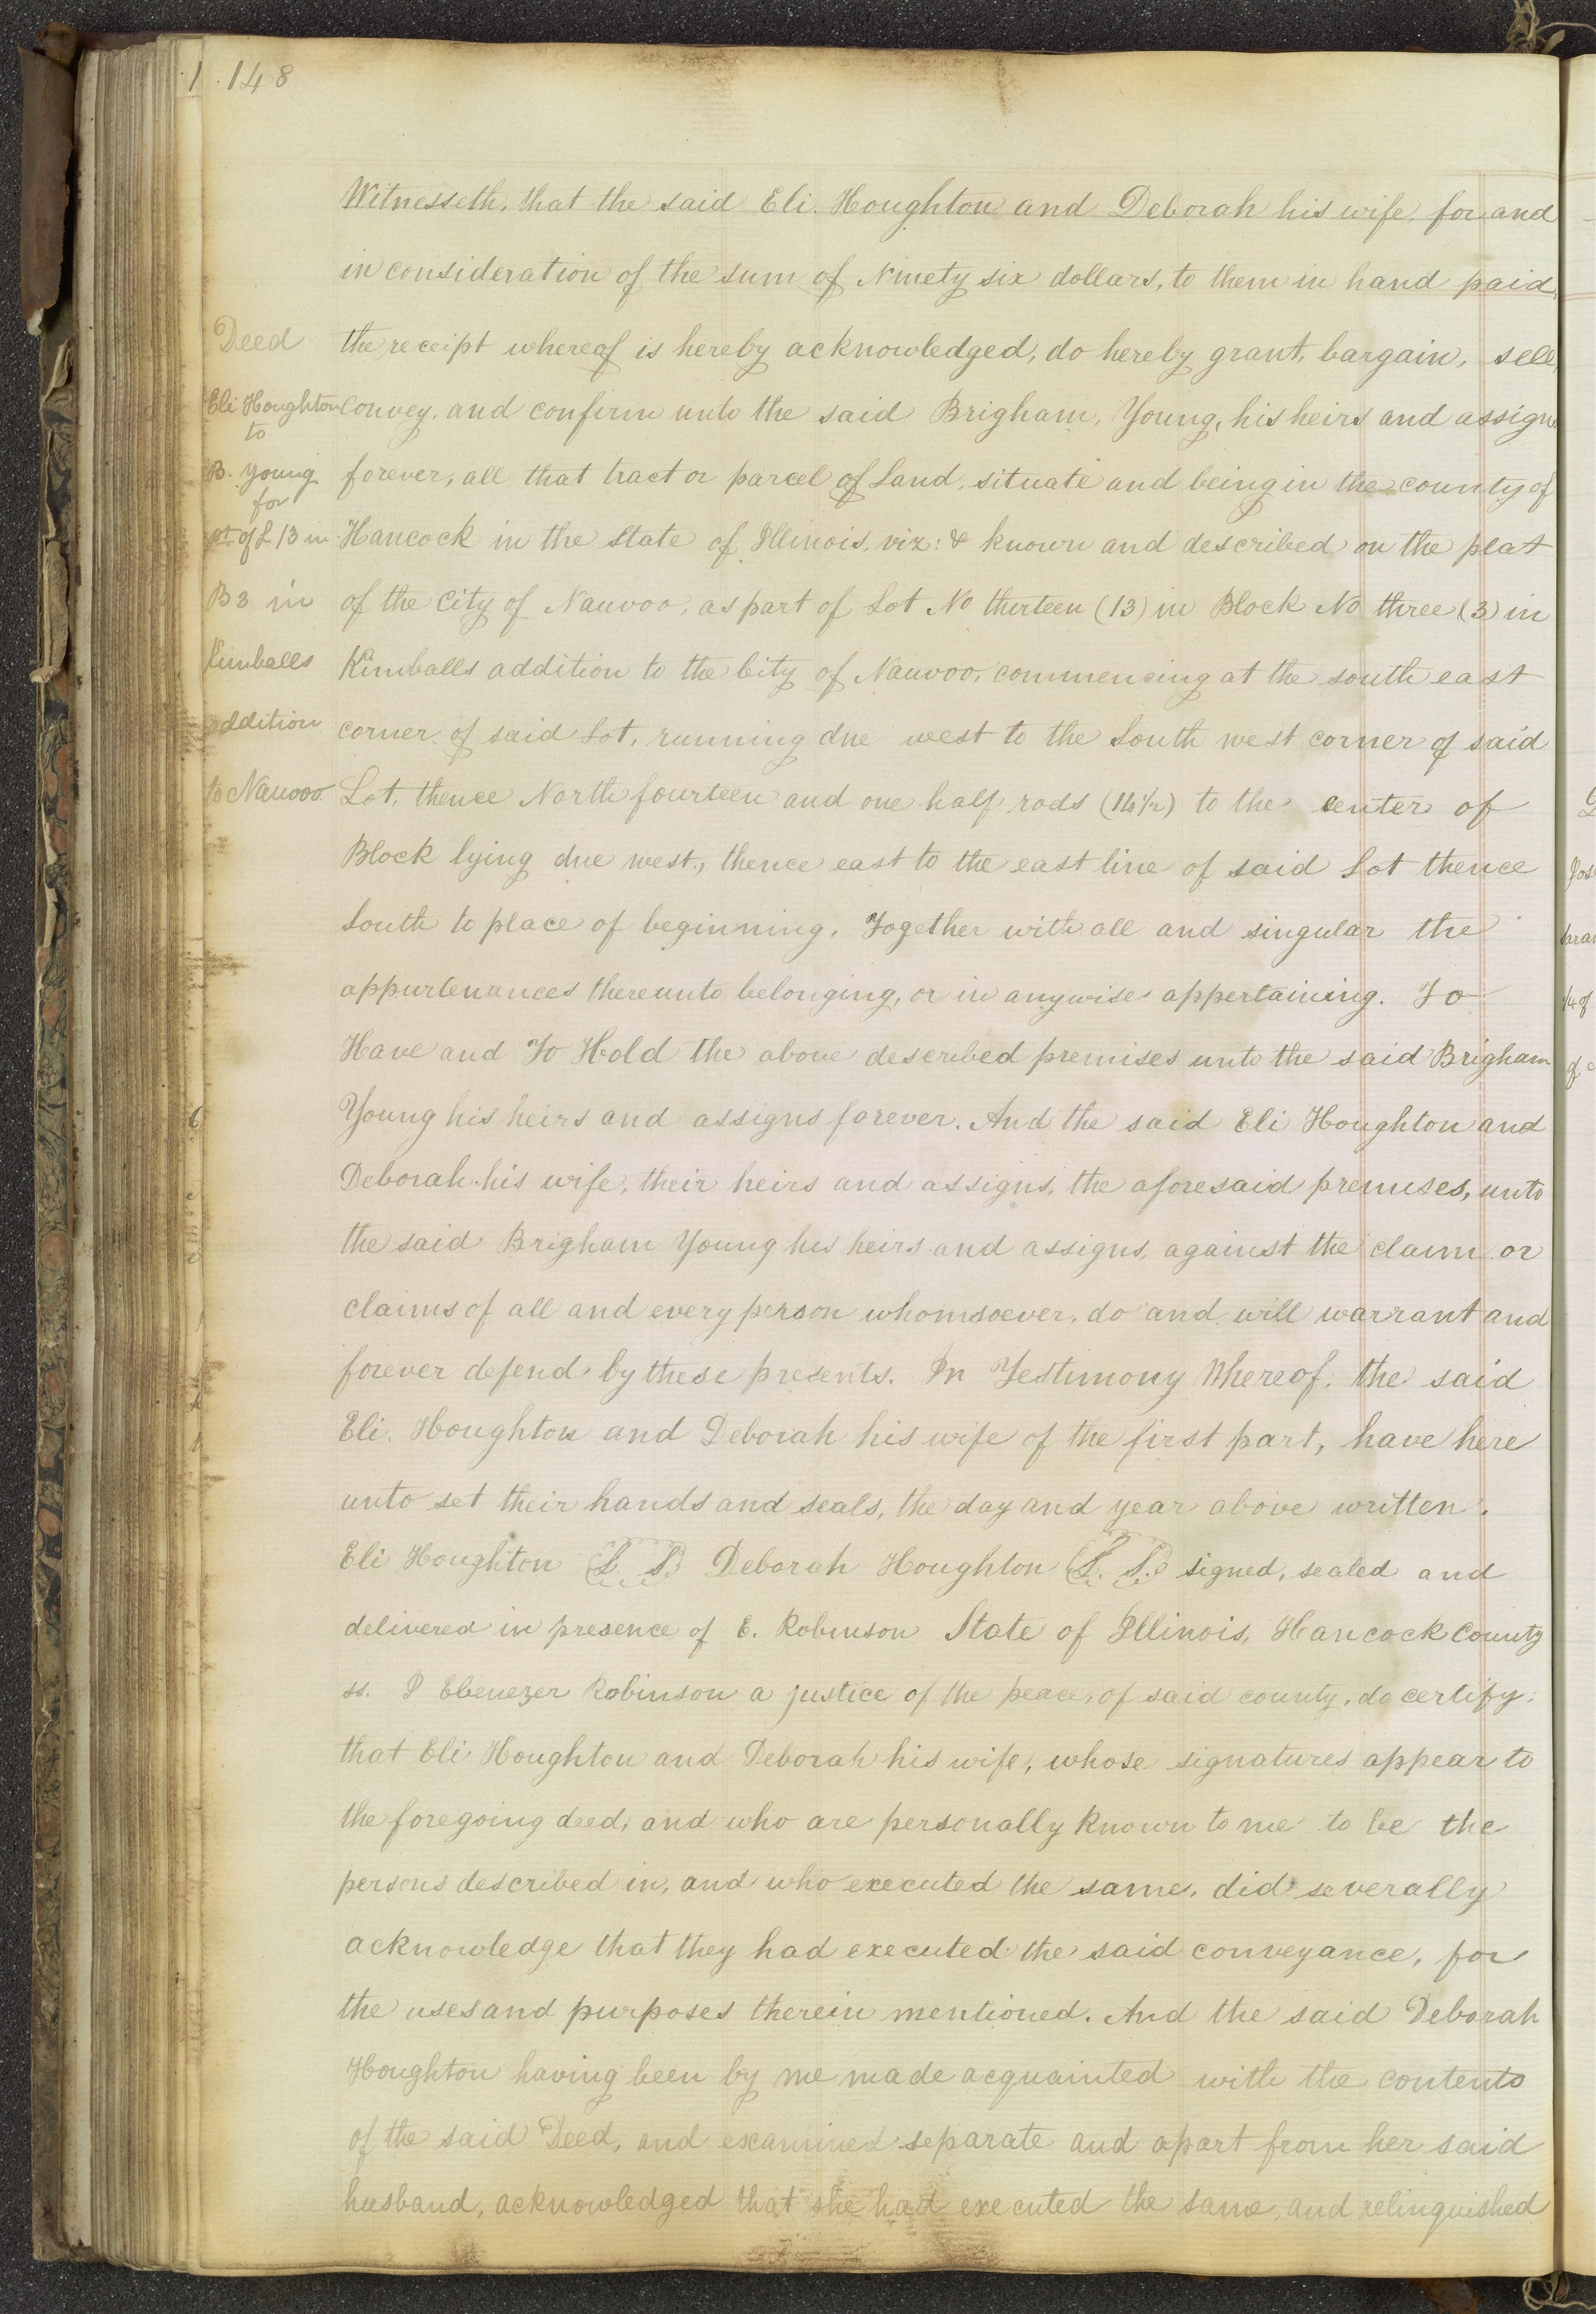 148
Witnesseth, that the said Eli. Houghton and Deborah his wife, for and
in consideration of the sum of Ninety six dollars, to them in hand paid,
the receipt whereof is hereby acknowledged, do hereby grant, bargain, sell,
Convey, and confirm unto the said Brigham, Young, his heirs and assigns
forever, all that tract or parcel of Land, situate and being in the county of
Hancock in the State of Illinois, viz: & known and described on the plat
of the City of Nauvoo, as part of Lot No thirteen (13) in Block No three (3) in
Kimballs addition to the City of Nauvoo, commencing at the south east
corner of said Lot, running due west to the South west corner of said
Lot, thence North fourteen and one half rods (14½) to the center of
Block lying due west, thence east to the east line of said Lot thence
South to place of beginning, Together with all and singular the
appurtenances thereunto belonging, or in anywise appertaining. To
Have and To Hold the above described premises unto the said Brigham
Young his heirs and assigns forever. And the said Eli Houghton and
Deborah his wife, their heirs and assigns, the aforesaid premises, unto
the said Brigham Young his heirs and assigns, against the claim or
claims of all and every person whomsoever, do and will warrant and
forever defend by these presents. In Testimony Whereof, the said
Eli. Houghton and Deborah his wife of the first part, have here
unto set their hands and seals, the day and year above written.
Eli Houghton L. S. Deborah Houghton L. S. signed, sealed and
delivered in presence of E. Robinson State of Illinois, Hancock County
ss. I Ebenezer Robinson a justice of the peace, of said county, do certify,
that Eli Houghton and Deborah his wife, whose signatures appear to
the foregoing deed, and who are personally known to me to be the
persons described in, and who executed the same, did severally
acknowledge that they had executed the said conveyance, for
the uses and purposes therein mentioned. And the said Deborah
Houghton having been by me made acquainted with the contents
of the said Deed, and examined separate and apart from her said
husband, acknowledged that she had executed the same, and relinquished
Deed
Eli Houghton
to
B. Young
for
pt of L 13 in
B 3 in
Kimballs
addition
to Nauvoo